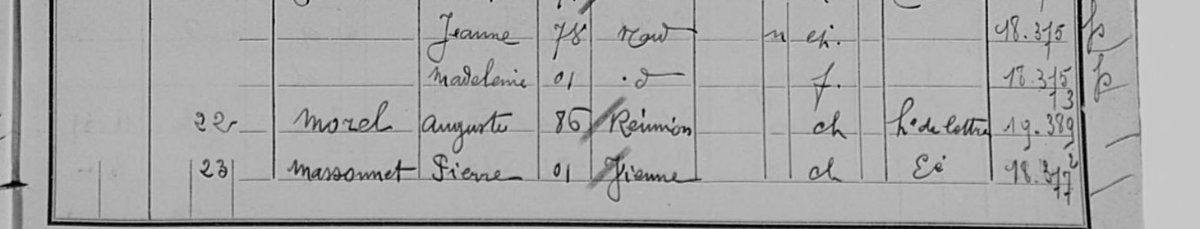 Jeanne 78 Nord n ép. 18.375
Madeleine 01 d f. 18.375
22 Morel Auguste 86 Réunion ch h. de lettre 19.389 73
23 Massonnet Pierre 01 Vienne ch Eé 18.377